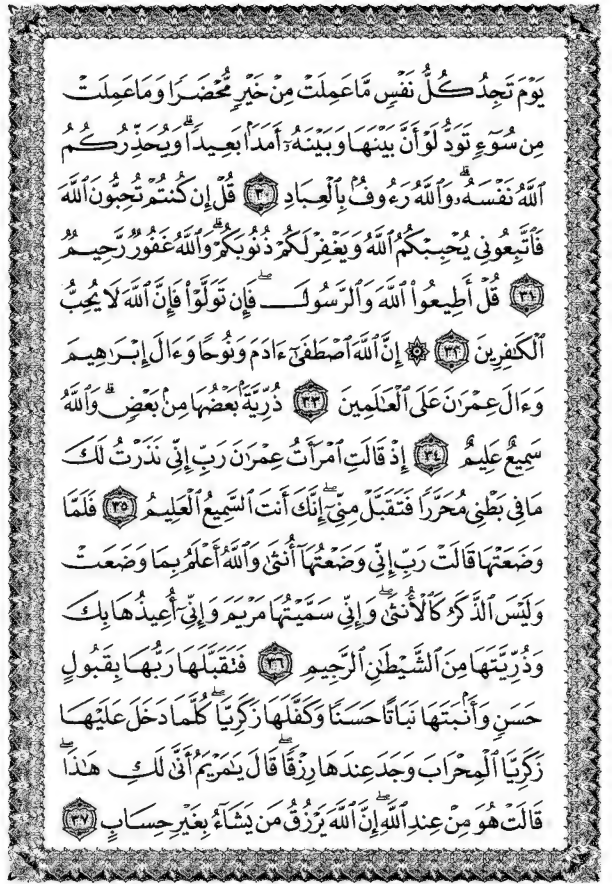 يَوْمَ تَجِدُ كُلُّ نَفْسٍ مَّا عَمِلَتْ مِنْ خَيْرٍ مُّحْضَرًا وَمَا عَمِلَتْ
مِن سُوٓءٍ تَوَدُّ لَوْ أَنَّ بَيْنَهَا وَبَيْنَهُۥٓ أَمَدَۢا بَعِيدًا ۗ وَيُحَذِّرُكُمُ
ٱللَّهُ نَفْسَهُۥ ۗ وَٱللَّهُ رَءُوفٌۢ بِٱلْعِبَادِ ٣٠ قُلْ إِن كُنتُمْ تُحِبُّونَ ٱللَّهَ
فَٱتَّبِعُونِى يُحْبِبْكُمُ ٱللَّهُ وَيَغْفِرْ لَكُمْ ذُنُوبَكُمْ ۗ وَٱللَّهُ غَفُورٌ رَّحِيمٌ
٣١ قُلْ أَطِيعُوا۟ ٱللَّهَ وَٱلرَّسُولَ ۖ فَإِن تَوَلَّوْا۟ فَإِنَّ ٱللَّهَ لَا يُحِبُّ
ٱلْكَـٰفِرِينَ ٣٢ ۞ إِنَّ ٱللَّهَ ٱصْطَفَىٰٓ ءَادَمَ وَنُوحًا وَءَالَ إِبْرَٰهِيمَ
وَءَالَ عِمْرَٰنَ عَلَى ٱلْعَـٰلَمِينَ ٣٣ ذُرِّيَّةَۢ بَعْضُهَا مِنۢ بَعْضٍ ۗ وَٱللَّهُ
سَمِيعٌ عَلِيمٌ ٣٤ إِذْ قَالَتِ ٱمْرَأَتُ عِمْرَٰنَ رَبِّ إِنِّى نَذَرْتُ لَكَ
مَا فِى بَطْنِى مُحَرَّرًا فَتَقَبَّلْ مِنِّىٓ ۖ إِنَّكَ أَنتَ ٱلسَّمِيعُ ٱلْعَلِيمُ ٣٥ فَلَمَّا
وَضَعَتْهَا قَالَتْ رَبِّ إِنِّى وَضَعْتُهَآ أُنثَىٰ وَٱللَّهُ أَعْلَمُ بِمَا وَضَعَتْ
وَلَيْسَ ٱلذَّكَرُ كَٱلْأُنثَىٰ ۖ وَإِنِّى سَمَّيْتُهَا مَرْيَمَ وَإِنِّىٓ أُعِيذُهَا بِكَ
وَذُرِّيَّتَهَا مِنَ ٱلشَّيْطَـٰنِ ٱلرَّجِيمِ ٣٦ فَتَقَبَّلَهَا رَبُّهَا بِقَبُولٍ
حَسَنٍ وَأَنۢبَتَهَا نَبَاتًا حَسَنًا وَكَفَّلَهَا زَكَرِيَّا ۖ كُلَّمَا دَخَلَ عَلَيْهَا
زَكَرِيَّا ٱلْمِحْرَابَ وَجَدَ عِندَهَا رِزْقًا ۖ قَالَ يَـٰمَرْيَمُ أَنَّىٰ لَكِ هَـٰذَا ۖ
قَالَتْ هُوَ مِنْ عِندِ ٱللَّهِ ۖ إِنَّ ٱللَّهَ يَرْزُقُ مَن يَشَآءُ بِغَيْرِ حِسَابٍ ٣٧